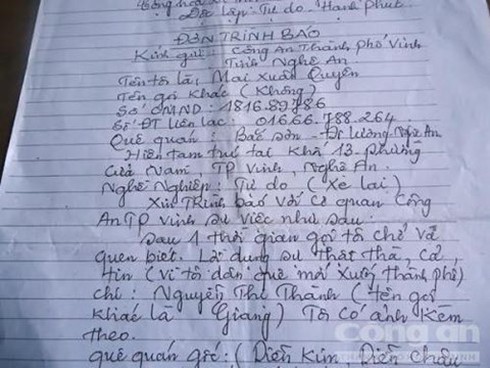 Độc lập - Tự do - Hạnh phúc
ĐƠN TRÌNH BÁO
Kính gửi : Công An Thành phố Vinh
Tỉnh Nghệ An.
Tên tôi là: Mai Xuân Quyên
Tên gọi khác (Không)
Số CMND : 181689786
Số ĐT liên lạc : 01666.788.264.
Quê quán : Bắc Sơn - Đô lương Nghệ An
Hiện tạm trú tại Khối 13 phường
Cửa Nam, TP Vinh, Nghệ An.
Nghề Nghiệp : Tự do (Xe lai)
Xin Trình báo với Cơ quan Công
An TP Vinh sự việc như sau.
Sau 1 thời gian gọi tôi chở và
quen biết. Lợi dụng sự thật thà, cả
tin (vì tôi dân quê mới xuống thành phố)
chị : Nguyễn Thị Thành (tên gọi
khác là Giang) Tôi có ảnh kèm
theo.
quê quán gốc : (Diễn Kim, Diễn Châu
Công an